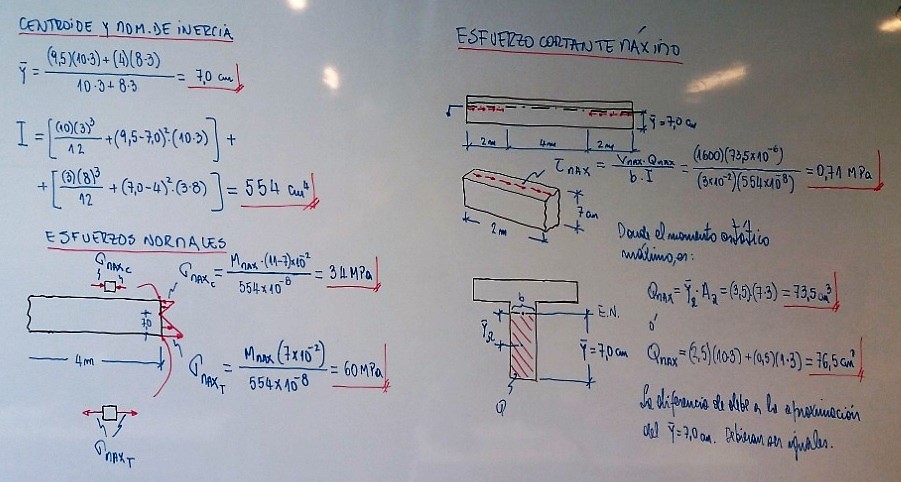 CENTROIDE Y MOM. DE INERCIA
Ȳ = (9,5)(10·3) + (4)(8·3) / 10·3 + 8·3 = 7,0 cm
I = [(10)(3)³/12 + (9,5-7,0)²·(10·3)] +
+ [(3)(8)³/12 + (7,0-4)²·(3·8)] = 554 cm⁴
ESFUERZOS NORMALES
σMAXc
σMAXc = MMAX·(11-7)×10⁻² / 554×10⁻⁸ = 34 MPa
7,0
4m
σMAXT = MMAX(7×10⁻²) / 554×10⁻⁸ = 60 MPa
σMAXT
ESFUERZO CORTANTE MÁXIMO
Ȳ = 7,0 cm
2m 4m 2m
τMAX = VMAX·QMAX / b·I = (1600)(73,5×10⁻⁶) / (3×10⁻²)(554×10⁻⁸) = 0,71 MPa
7 cm
2m
Donde el momento estático
máximo, es:
b
E.N.
ȲΩ
Ȳ = 7,0 cm
QMAX = ȲΩ·AΩ = (3,5)(7·3) = 73,5 cm³
ó
QMAX = (2,5)(10·3) + (0,5)(1·3) = 76,5 cm³
La diferencia se debe a la aproximación
del Ȳ = 7,0 cm. Debieran ser iguales.